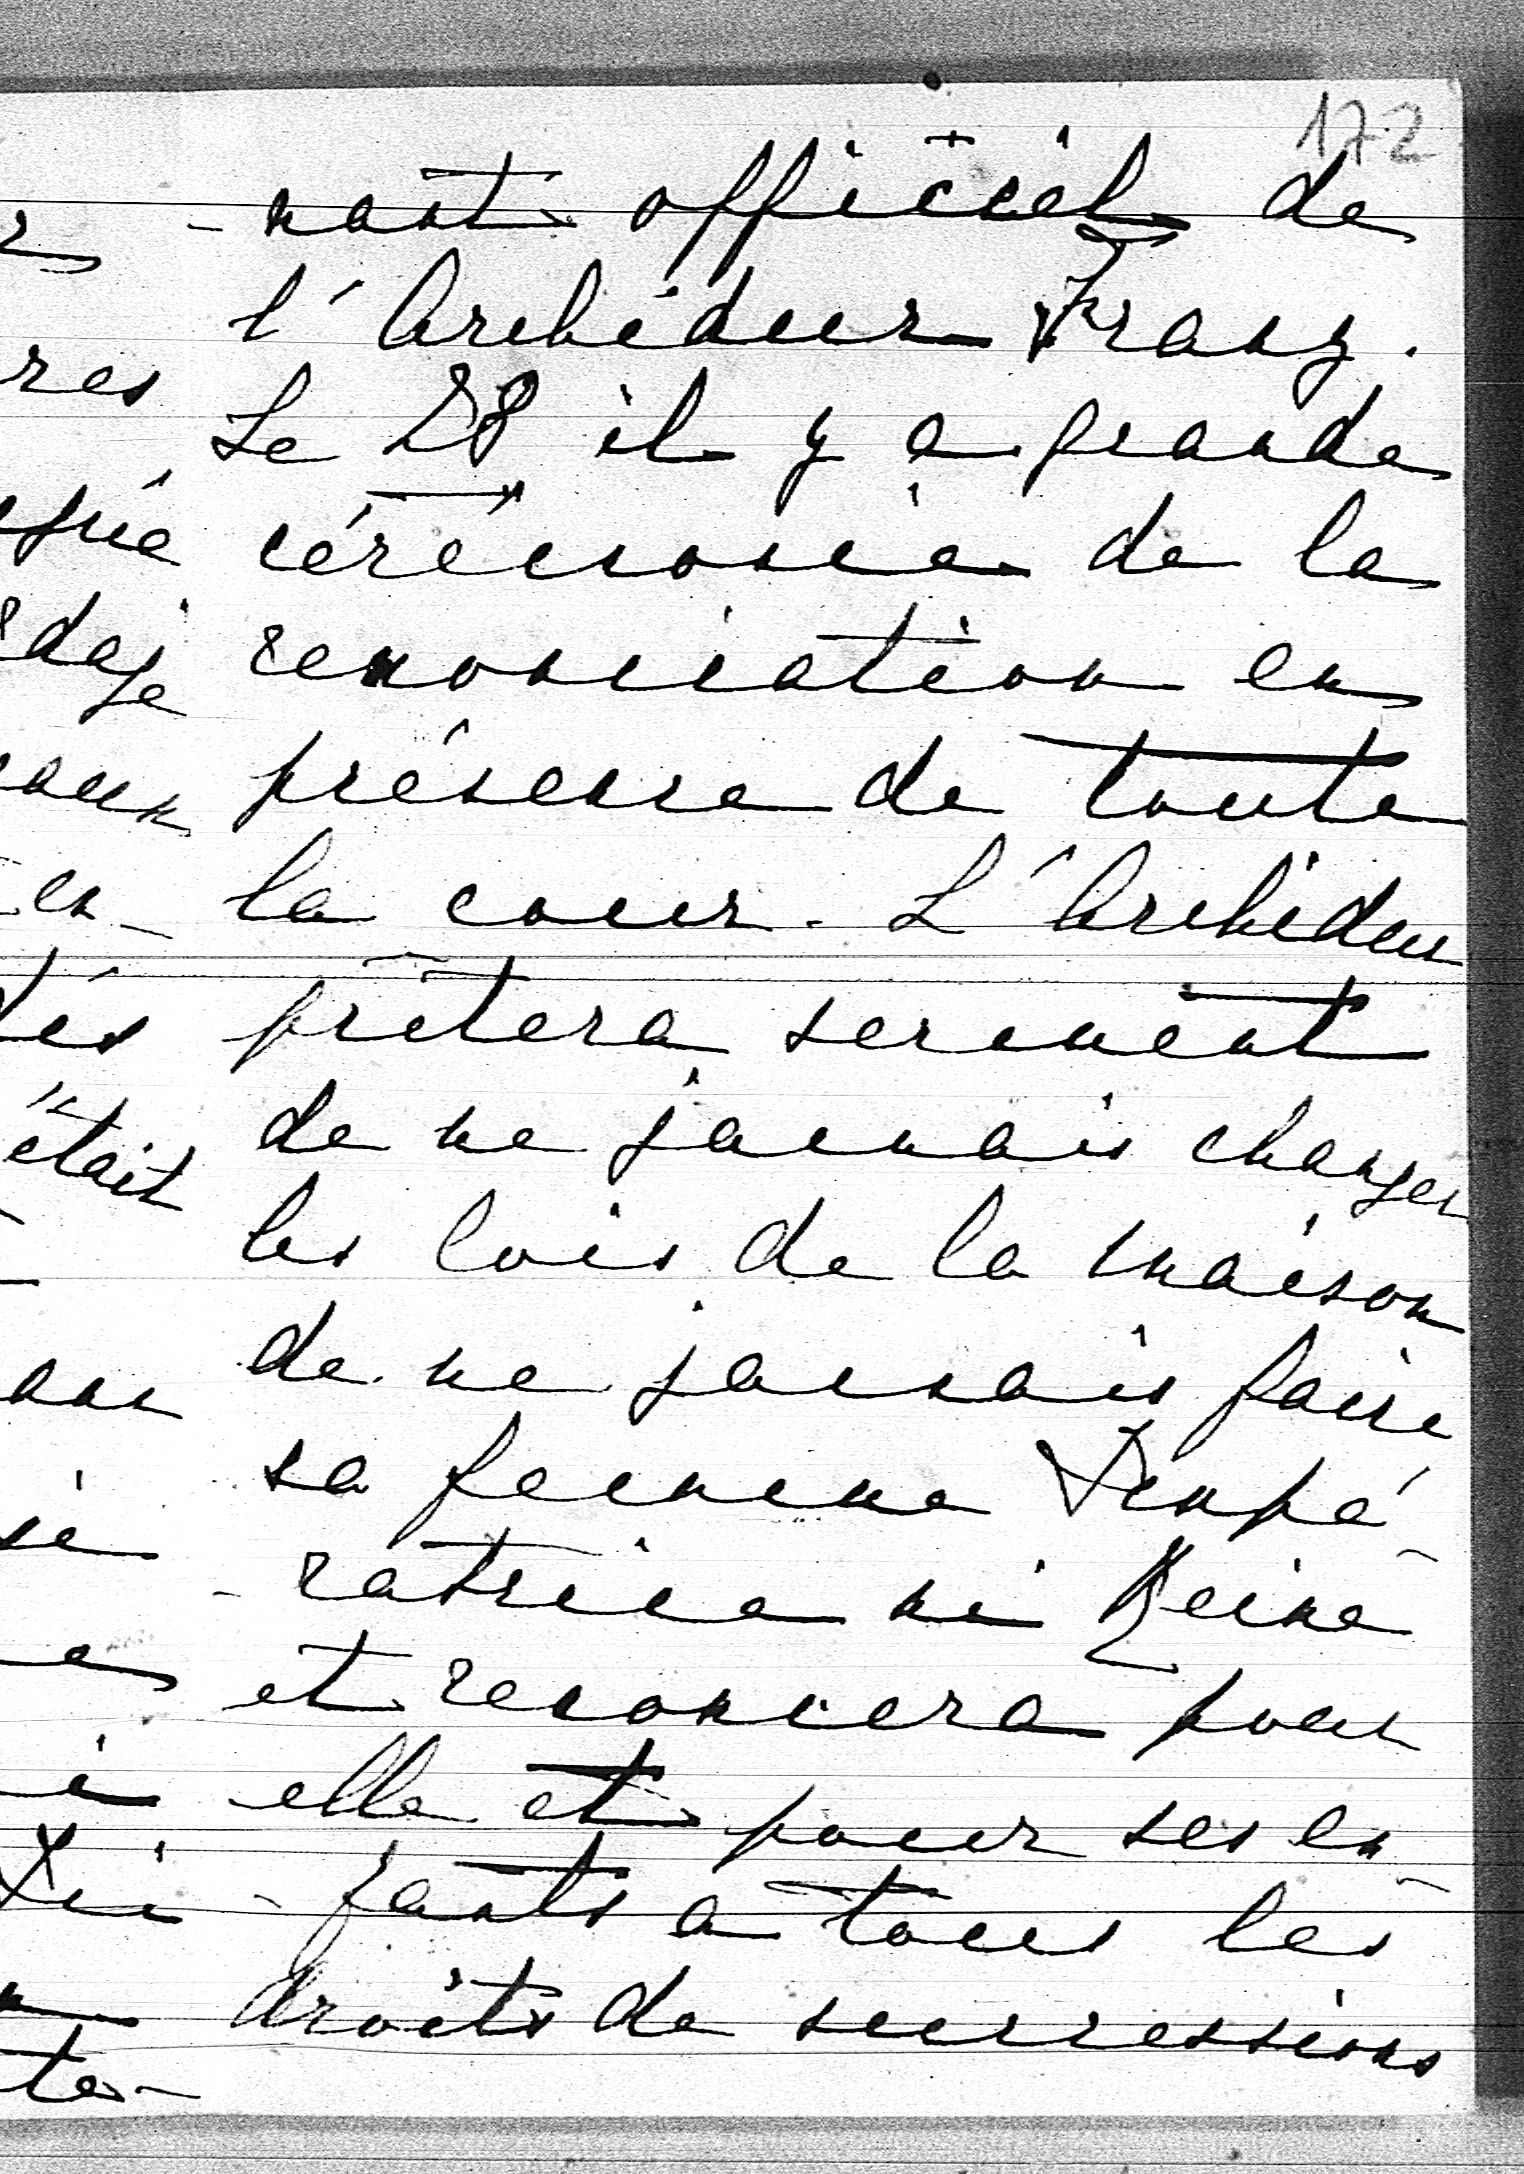 172
- nant officiel de
l'Archiduc Franz.
Le 28 il y a grande
cérémonie de la
renonciation en
présence de toute
la cour. L'Archiduc
prêtera serment
de ne jamais changer
les lois de la maison
de ne jamais faire
sa femme Impé-
- ratrice ni Reine
et renoncera pour
elle et pour ses en-
- fants a tous les
droits de successions
res
était